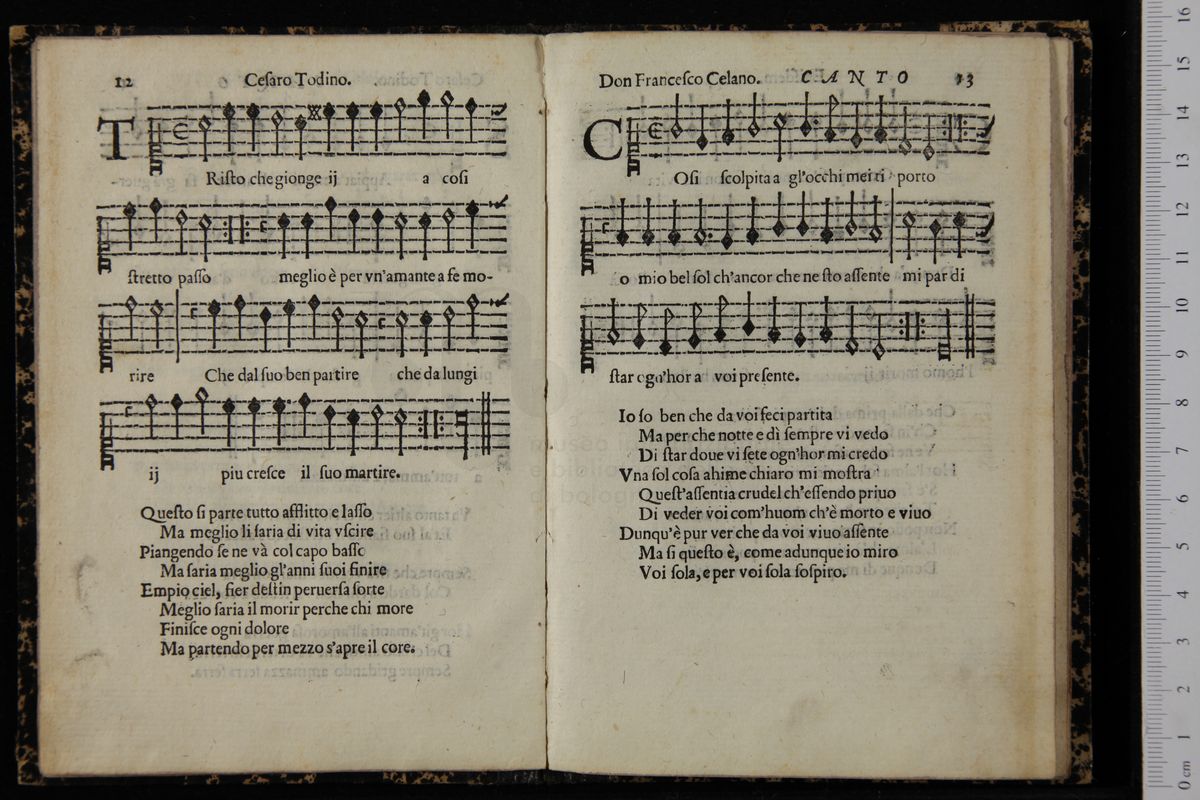 12 Ceſaro Todino.
TRiſto che gionge ij a coſi
ſtretto paſſo meglio è per vn'amante a fe mo-
rire Che dal ſuo ben partire che da lungi
ij piu creſce il ſuo martire.
Queſto ſi parte tutto afflitto e laſſo
Ma meglio li ſaria di vita vſcire
Piangendo ſe ne và col capo baſſo
Ma ſaria meglio gl'anni ſuoi finire
Empio ciel, fier deſtin peruerſa ſorte
Meglio ſaria il morir perche chi more
Finiſce ogni dolore
Ma partendo per mezzo s'apre il core.
Don Franceſco Celano. CANTO 13
COſi ſcolpita a gl'occhi mei ti porto
o mio bel ſol ch'ancor che ne ſto aſſente mi par di
ſtar ogn'hor a voi preſente.
Io ſo ben che da voi feci partita
Ma per che notte e dì ſempre vi vedo
Di ſtar doue vi ſete ogn'hor mi credo
Vna ſol coſa ahime chiaro mi moſtra
Queſt'aſſentia crudel ch'eſſendo priuo
Di veder voi com'huom ch'è morto e viuo
Dunqu'è pur ver che da voi viuo aſſente
Ma ſi queſto è, come adunque io miro
Voi ſola, e per voi ſola ſoſpiro.
16
15
14
13
12
11
10
9
8
7
6
5
4
3
2
1
0 cm